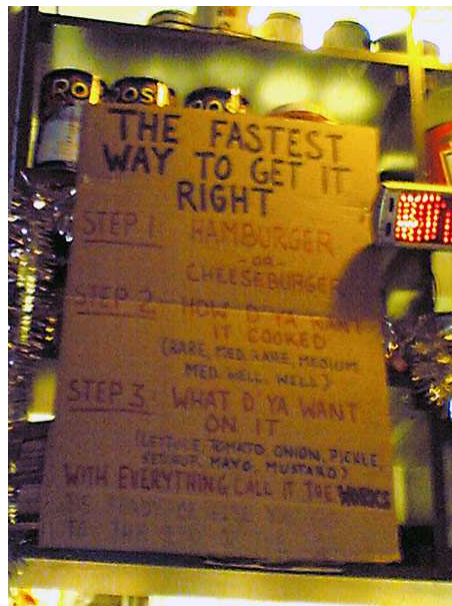 THE FASTEST
WAY TO GET IT
RIGHT
STEP 1 HAMBURGER
-OR-
CHEESEBURGER
STEP 2 HOW D'YA WANT
IT COOKED
(RARE, MED. RARE, MEDIUM
MED. WELL, WELL)
STEP 3 WHAT D'YA WANT
ON IT
(LETTUCE, TOMATO, ONION, PICKLE,
KETCHUP, MAYO, MUSTARD)
WITH EVERYTHING CALL IT THE WORKS